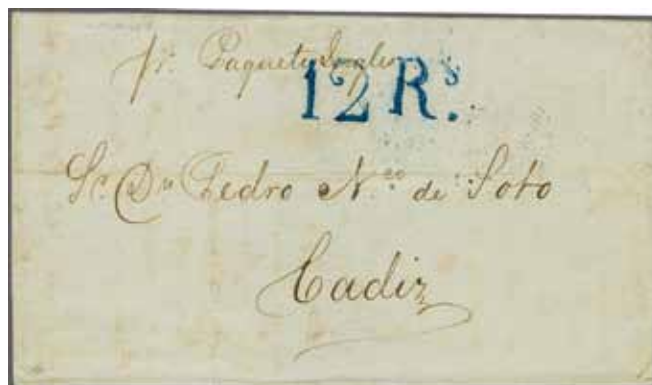 pr. Paquete Ingles
12 Rs.
Sr. Dn Pedro N.co de Soto
Cadiz